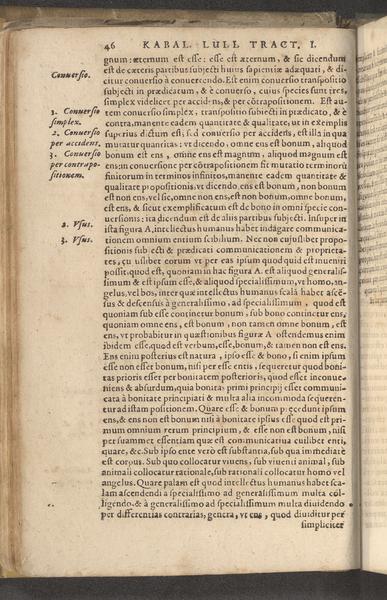 46 KABAL. LULL TRACT. I.
gnum: æternum est esse: esse est æternum, & sic dicendum
est de cæteris partibus subjecti huius sapientiæ adæquati, & di-
citur conversio à convertendo. Est enim conversio transpositio
subjecti in prædicatum, & è converso, cuius species sunt tres,
simplex videlicet per accidens, & per cõtrapositionem. Est au-
tem conversio simplex, transpositio subjecti in prædicatũ, & è
contra, manente eadem quantitate & qualitate, ut in exemplis
superius dictum est; sed conversio per accidens, est illa in qua
mutatur quantitas: ut dicendo, omne ens est bonum, aliquod
bonum est ens, omne ens est magnum, aliquod magnum est
ens: in conversione per cõtrapositionem fit mutatio terminorũ
finitorum in terminos infinitos, manente eadem quantitate &
qualitate propositionis, vt dicendo, ens est bonum, non bonum
est non ens, vel sic, omne non ens, est non bonum, omne bonum,
est ens, & sicut exemplificatum est de bono in omni specie con-
versionis: ita dicendum est de aliis partibus subjecti. Insuper in
ista figura A, intellectus humanus habet indagare communica-
tionem omnium entium scibilium. Nec non cujuslibet propo-
sitionis subjecti & prædicati communicationem & proprieta-
tes, cũ uslibet eorum vt per eas ipsum quod quid est inueniri
possit. quod est, quoniam in hac figura A. est aliquod generalis-
simum & est ipsum esse, & aliquod specialissimum, vt homo, an-
gelus, vel bos, inter quæ intellectus humanus scalã habet ascẽ-
sus & descensus à generalissimo, ad specialissimum. quod est
quoniam sub esse continetur bonum, sub bono continetur ens,
quoniam omne ens, est bonum, non tamen omne bonum, est
ens, vt probabitur in quæstionibus figuræ A ostendemus enim
ibidem esse, quod est verbum, esse, bonum, & tamen non est ens.
Ens enim posterius est natura, ipso esse & bono, si enim ipsum
esse non esset bonum, nisi per esse entis, sequeretur quod boni-
tas prioris esset per bonitatem posterioris, quod esset inconue-
niens & absurdum, quia bonitas primi principij esset communi-
cata à bonitate principiati & multa alia incommoda sequeren-
tur ad istam positionem. Quare esse & bonum præcedunt ipsum
ens, & ens non est bonum nisi à bonitate ipsius esse quod est pri-
mum omnium rerum principium, & esse non est bonum, nisi
per suammet essentiam quæ est communicatiua cuilibet enti,
quare, &c. Sub ipso ente verò est substantia, sub qua immediatè
est corpus. Sub quo collocatur viuens, sub viuenti animal, sub
animali collocatur rationale, sub rationali collocatur homo vel
angelus. Quare palam est quod intellectus humanus habet sca-
lam ascendendi à specialissimo ad generalissimum multa cõl-
ligendo & à generalissimo ad specialissimum multa diuidendo
per differentias contrarias, genera, vt ens, quod diuiditur per
simpliciter
Conversio.
1. Conversio
simplex.
2. Conversio
per accidens.
3. Conversio
per contrapo-
sitionem.
2. Vsus.
3. Vsus.